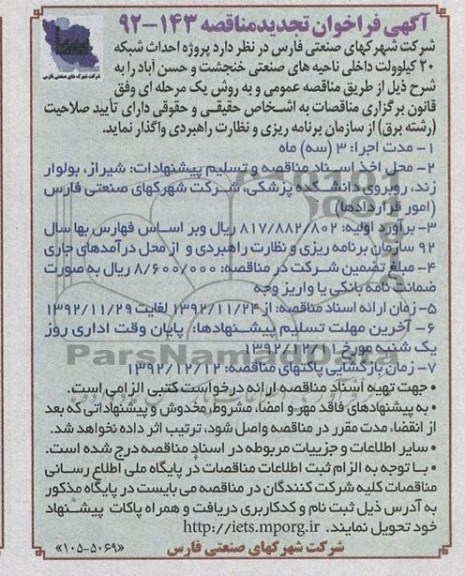 آگهی فراخوان تجدیدمناقصه ۱۴۳-۹۲
شرکت شهرکهای صنعتی فارس
شرکت شهرکهای صنعتی فارس در نظر دارد پروژه احداث شبکه
۲۰ کیلوولت داخلی ناحیه های صنعتی خنجشت و حسن آباد را به
شرح ذیل از طریق مناقصه عمومی و به روش یک مرحله ای وفق
قانون برگزاری مناقصات به اشخاص حقیقی و حقوقی دارای تأیید صلاحیت
(رشته برق) از سازمان برنامه ریزی و نظارت راهبردی واگذار نماید.
۱- مدت اجرا: ۳ (سه) ماه
۲- محل اخذ اسناد مناقصه و تسلیم پیشنهادات: شیراز، بولوار
زند، روبروی دانشکده پزشکی، شرکت شهرکهای صنعتی فارس
(امور قراردادها)
۳- برآورد اولیه: ۸۱۷/۸۸۲/۸۰۲ ریال وبر اساس فهارس بها سال
۹۲ سازمان برنامه ریزی و نظارت راهبردی و از محل درآمدهای جاری
۴- مبلغ تضمین شرکت در مناقصه: ۸/۶۰۰/۰۰۰ ریال به صورت
ضمانت نامه بانکی یا واریز وجه
۵- زمان ارائه اسناد مناقصه: از ۱۳۹۲/۱۱/۲۴ لغایت ۱۳۹۲/۱۱/۲۹
۶- آخرین مهلت تسلیم پیشنهادها: پایان وقت اداری روز
یک شنبه مورخ ۱۳۹۲/۱۲/۱۱
۷- زمان بازگشایی پاکتهای مناقصه: ۱۳۹۲/۱۲/۱۲
• جهت تهیه اسناد مناقصه ارائه درخواست کتبی الزامی است.
• به پیشنهادهای فاقد مهر و امضا، مشروط، مخدوش و پیشنهاداتی که بعد
از انقضاء مدت مقرر در مناقصه واصل شود، ترتیب اثر داده نخواهد شد.
• سایر اطلاعات و جزییات مربوطه در اسناد مناقصه درج شده است.
• با توجه به الزام ثبت اطلاعات مناقصات در پایگاه ملی اطلاع رسانی
مناقصات کلیه شرکت کنندگان در مناقصه می بایست در پایگاه مذکور
به آدرس ذیل ثبت نام و کدکاربری دریافت و همراه پاکات پیشنهاد
خود تحویل نمایند. http://iets.mporg.ir
شرکت شهرکهای صنعتی فارس
«۱۰۵-۵۰۶۹»
ParsNamadData